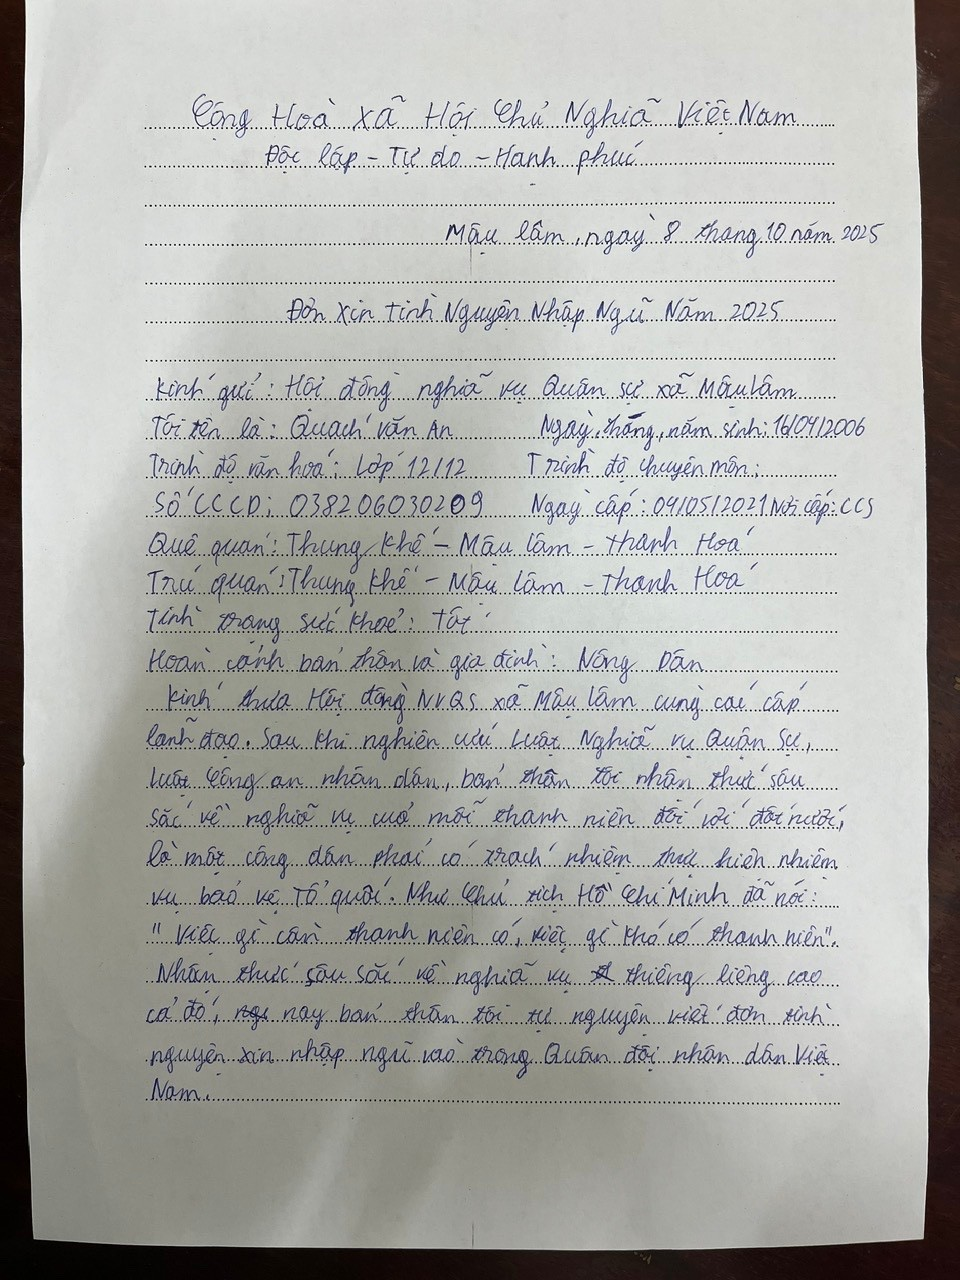 Cộng Hoà Xã Hội Chủ Nghiã Việt Nam
Độc lập - Tự do - Hạnh phúc
Mậu Lâm, ngày 8 tháng 10 năm 2025
Đơn xin tình Nguyện Nhập Ngũ Năm 2025
Kính gửi: Hội đồng nghiã vụ Quân sự xã Mậu Lâm
Tôi tên là: Quách văn An Ngày, tháng, năm sinh: 16/04/2006
Trình độ văn hoá: Lớp 12/12 Trình độ chuyên môn:
Số CCCD: 038206030209 Ngày cấp: 09/05/2021 Nơi cấp: CCS
Quê quán: Thung Khế - Mậu Lâm - Thanh Hoá
Trú quán: Thung Khế - Mậu Lâm - Thanh Hoá
Tình trạng sức khoẻ: Tốt
Hoàn cảnh bản thân và gia đình: Nông Dân
Kính thưa Hội đồng NVQS xã Mậu Lâm cùng các cấp
lãnh đạo. Sau khi nghiên cứu Luật Nghiã vụ Quận Sự,
luật Công an nhân dân, bản thân tôi nhận thức sâu
sắc về nghiã vụ của mỗi thanh niên đối với đất nước,
là một công dân phải có trách nhiệm thực hiện nhiệm
vụ bảo vệ Tổ quốc. Như Chủ tịch Hồ Chí Minh đã nói:
" Việc gì cần thanh niên có, việc gì khó có thanh niên".
Nhận thức sâu sắc về nghiã vụ thiêng liêng cao
cả đó, nay bản thân tôi tự nguyện viết đơn tình
nguyện xin nhập ngũ vào trong Quân đội nhân dân Việt
Nam.